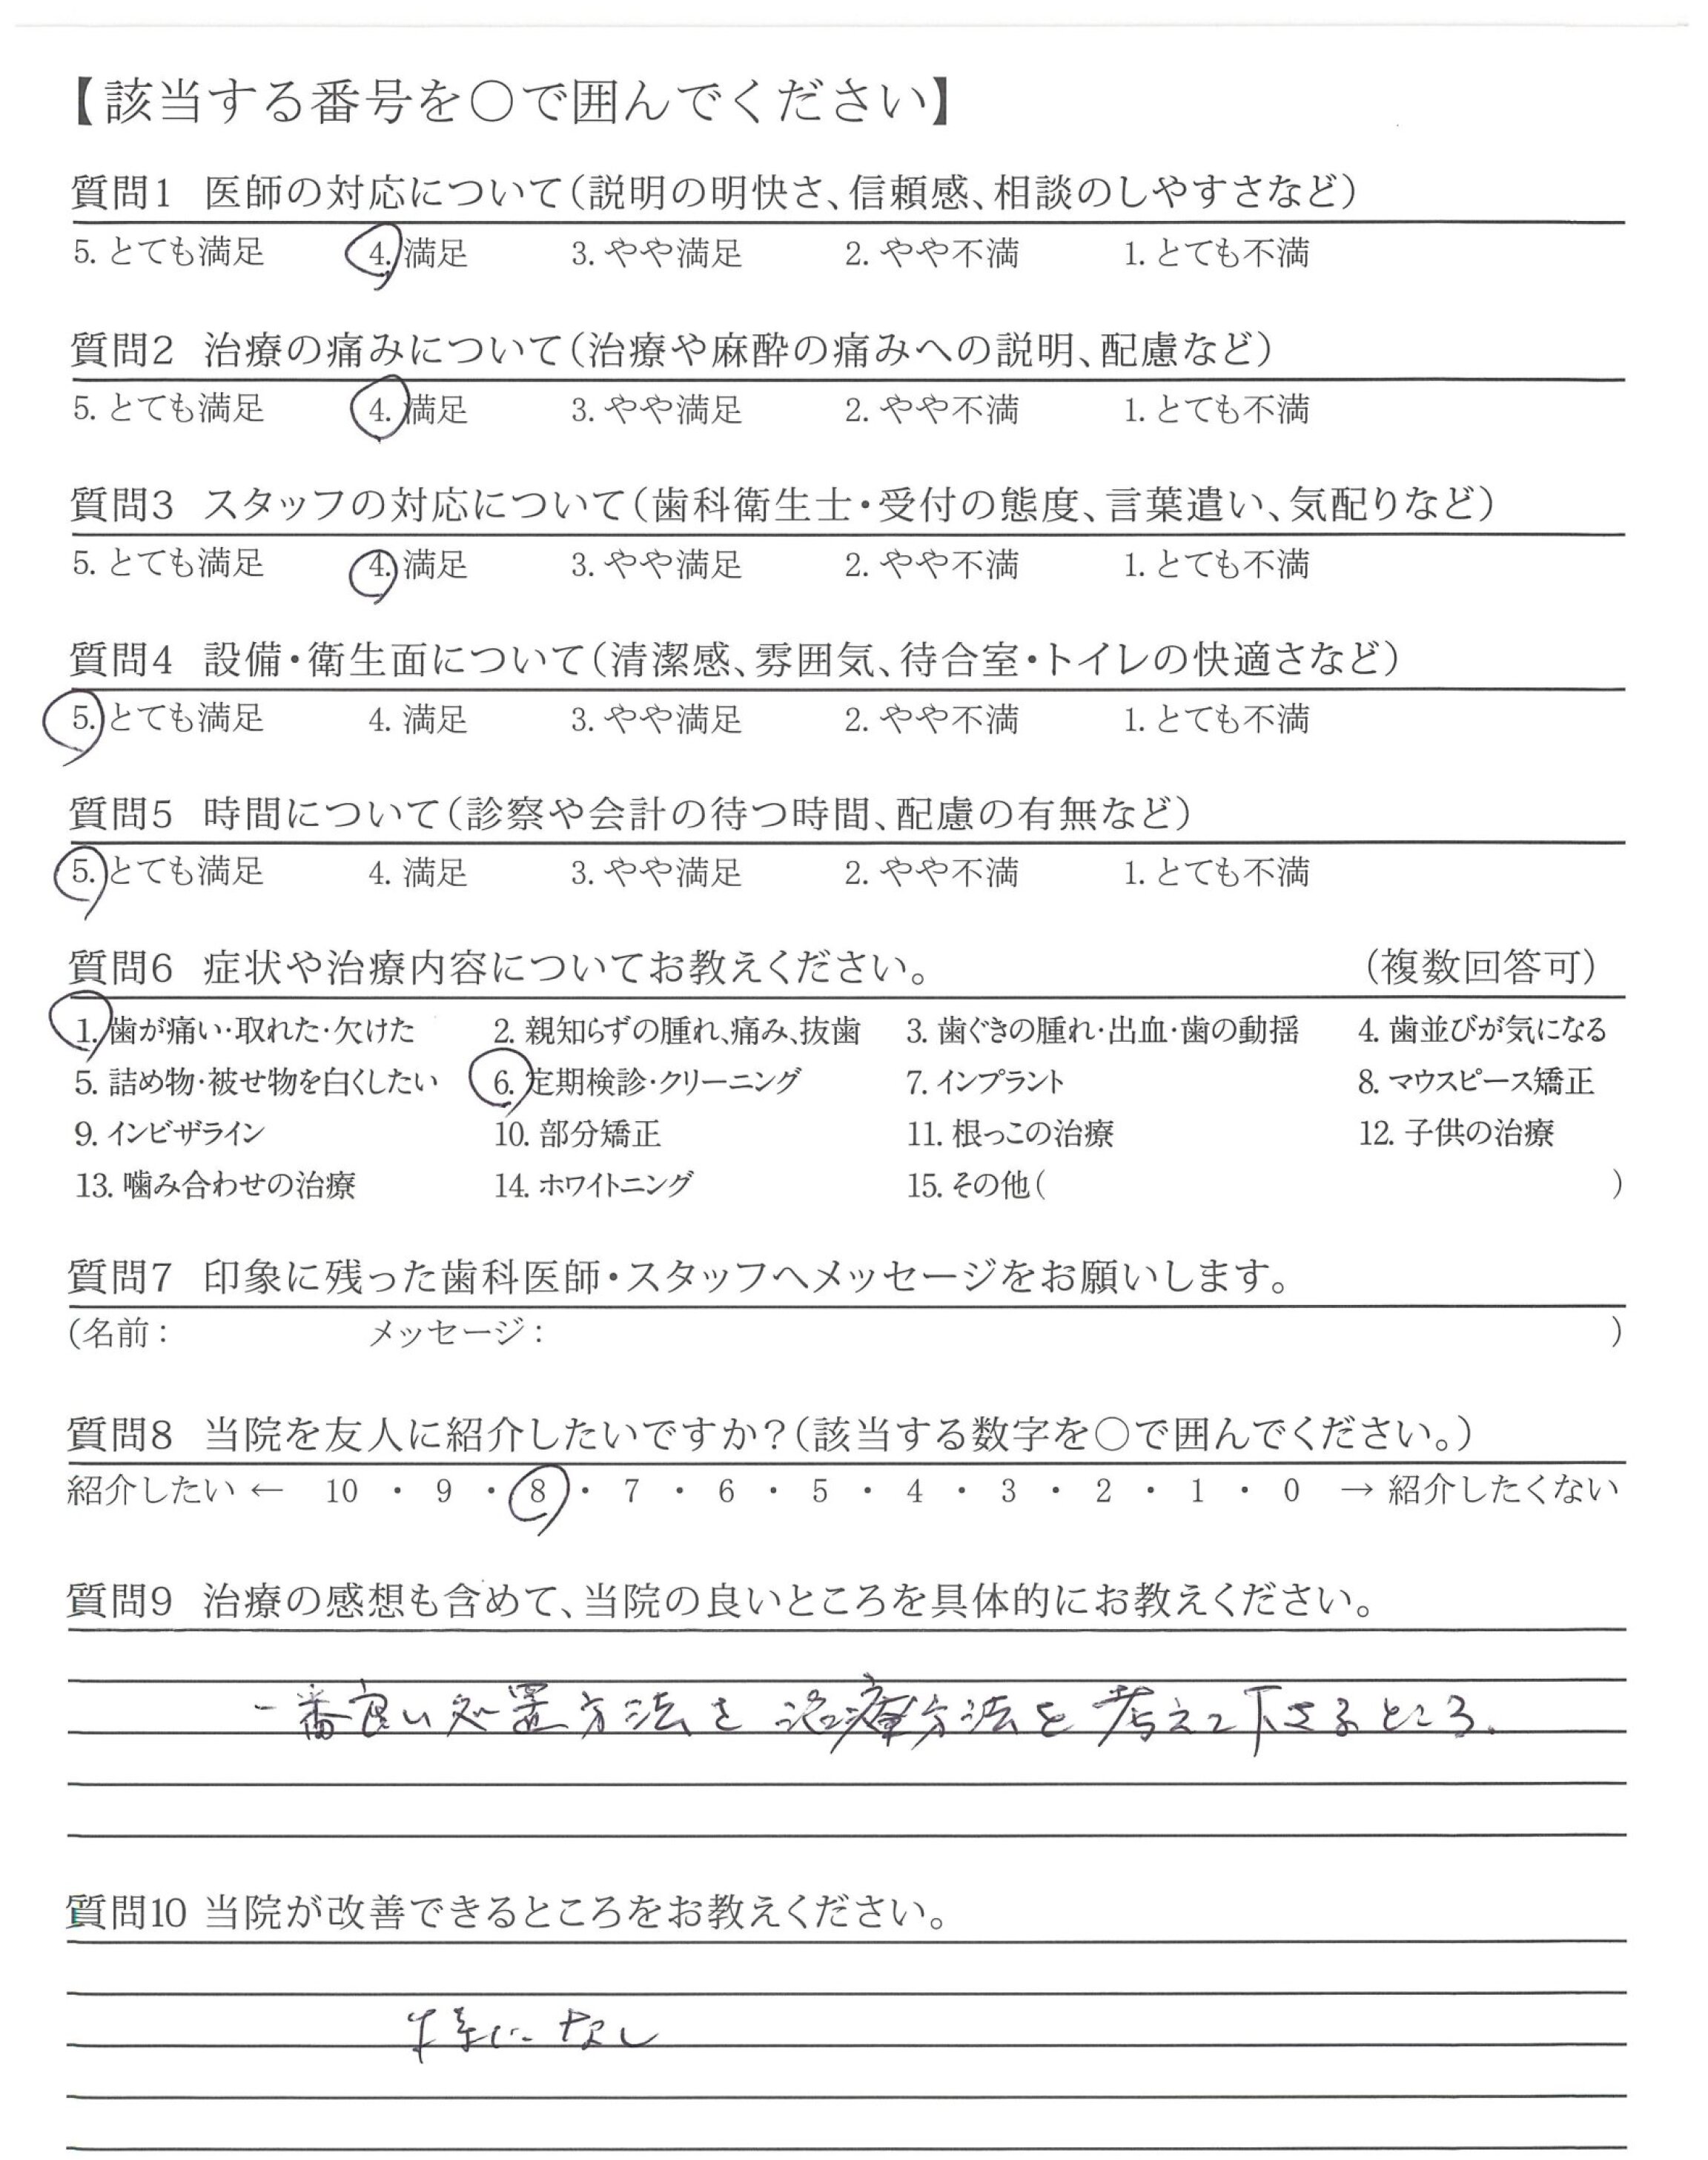 【該当する番号を○で囲んでください】
質問1 医師の対応について(説明の明快さ、信頼感、相談のしやすさなど)
5. とても満足 4. 満足 3. やや満足 2. やや不満 1. とても不満
質問2 治療の痛みについて(治療や麻酔の痛みへの説明、配慮など)
5. とても満足 4. 満足 3. やや満足 2. やや不満 1. とても不満
質問3 スタッフの対応について(歯科衛生士・受付の態度、言葉遣い、気配りなど)
5. とても満足 4. 満足 3. やや満足 2. やや不満 1. とても不満
質問4 設備・衛生面について(清潔感、雰囲気、待合室・トイレの快適さなど)
5. とても満足 4. 満足 3. やや満足 2. やや不満 1. とても不満
質問5 時間について(診察や会計の待つ時間、配慮の有無など)
5. とても満足 4. 満足 3. やや満足 2. やや不満 1. とても不満
質問6 症状や治療内容についてお教えください。 (複数回答可)
1. 歯が痛い・取れた・欠けた 2. 親知らずの腫れ、痛み、抜歯 3. 歯ぐきの腫れ・出血・歯の動揺 4. 歯並びが気になる
5. 詰め物・被せ物を白くしたい 6. 定期検診・クリーニング 7. インプラント 8. マウスピース矯正
9. インビザライン 10. 部分矯正 11. 根っこの治療 12. 子供の治療
13. 噛み合わせの治療 14. ホワイトニング 15. その他( )
質問7 印象に残った歯科医師・スタッフへメッセージをお願いします。
(名前: メッセージ: )
質問8 当院を友人に紹介したいですか?(該当する数字を○で囲んでください。)
紹介したい ← 10 ・ 9 ・ 8 ・ 7 ・ 6 ・ 5 ・ 4 ・ 3 ・ 2 ・ 1 ・ 0 → 紹介したくない
質問9 治療の感想も含めて、当院の良いところを具体的にお教えください。
一番良い処置方法を治療方法を考えて下さるところ.
質問10 当院が改善できるところをお教えください。
特になし